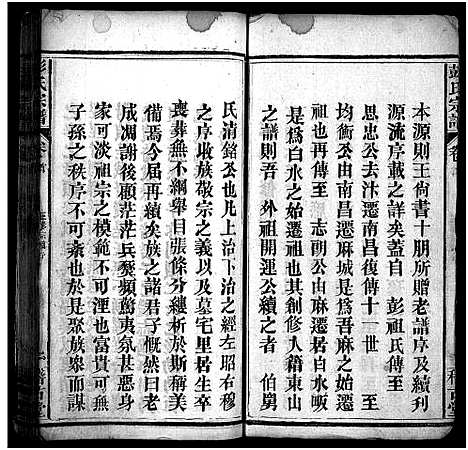 彭氏宗譜
卷首
本源則王尚書十朋所贈老譜序及續刊
源流序載之詳矣蓋自 彭祖氏傳至
思忠公去汴遷南昌復傳十一世
均衡公由南昌遷麻城是爲吾麻之始遷
祖也再傳至 志朝公由麻遷居白水畈
是爲白水之始遷祖也其創修人籍東山
之譜則吾 外祖開運公續之者 伯舅
氏清銘公也凡上治下治之經左昭右穆
之序收族敬宗之義以及墓宅里居生卒
喪葬無不綱舉目張條分縷析於斯稱美
備焉今屆再續矣族之諸君子慨然曰自
咸凋謝後顧茫茫兵燹頻驚夷氛甚惡身
家可淡祖宗之模範不可不存富貴可忘
子孫之秩序不可紊也於是聚族衆而謀
彭氏宗譜
卷首